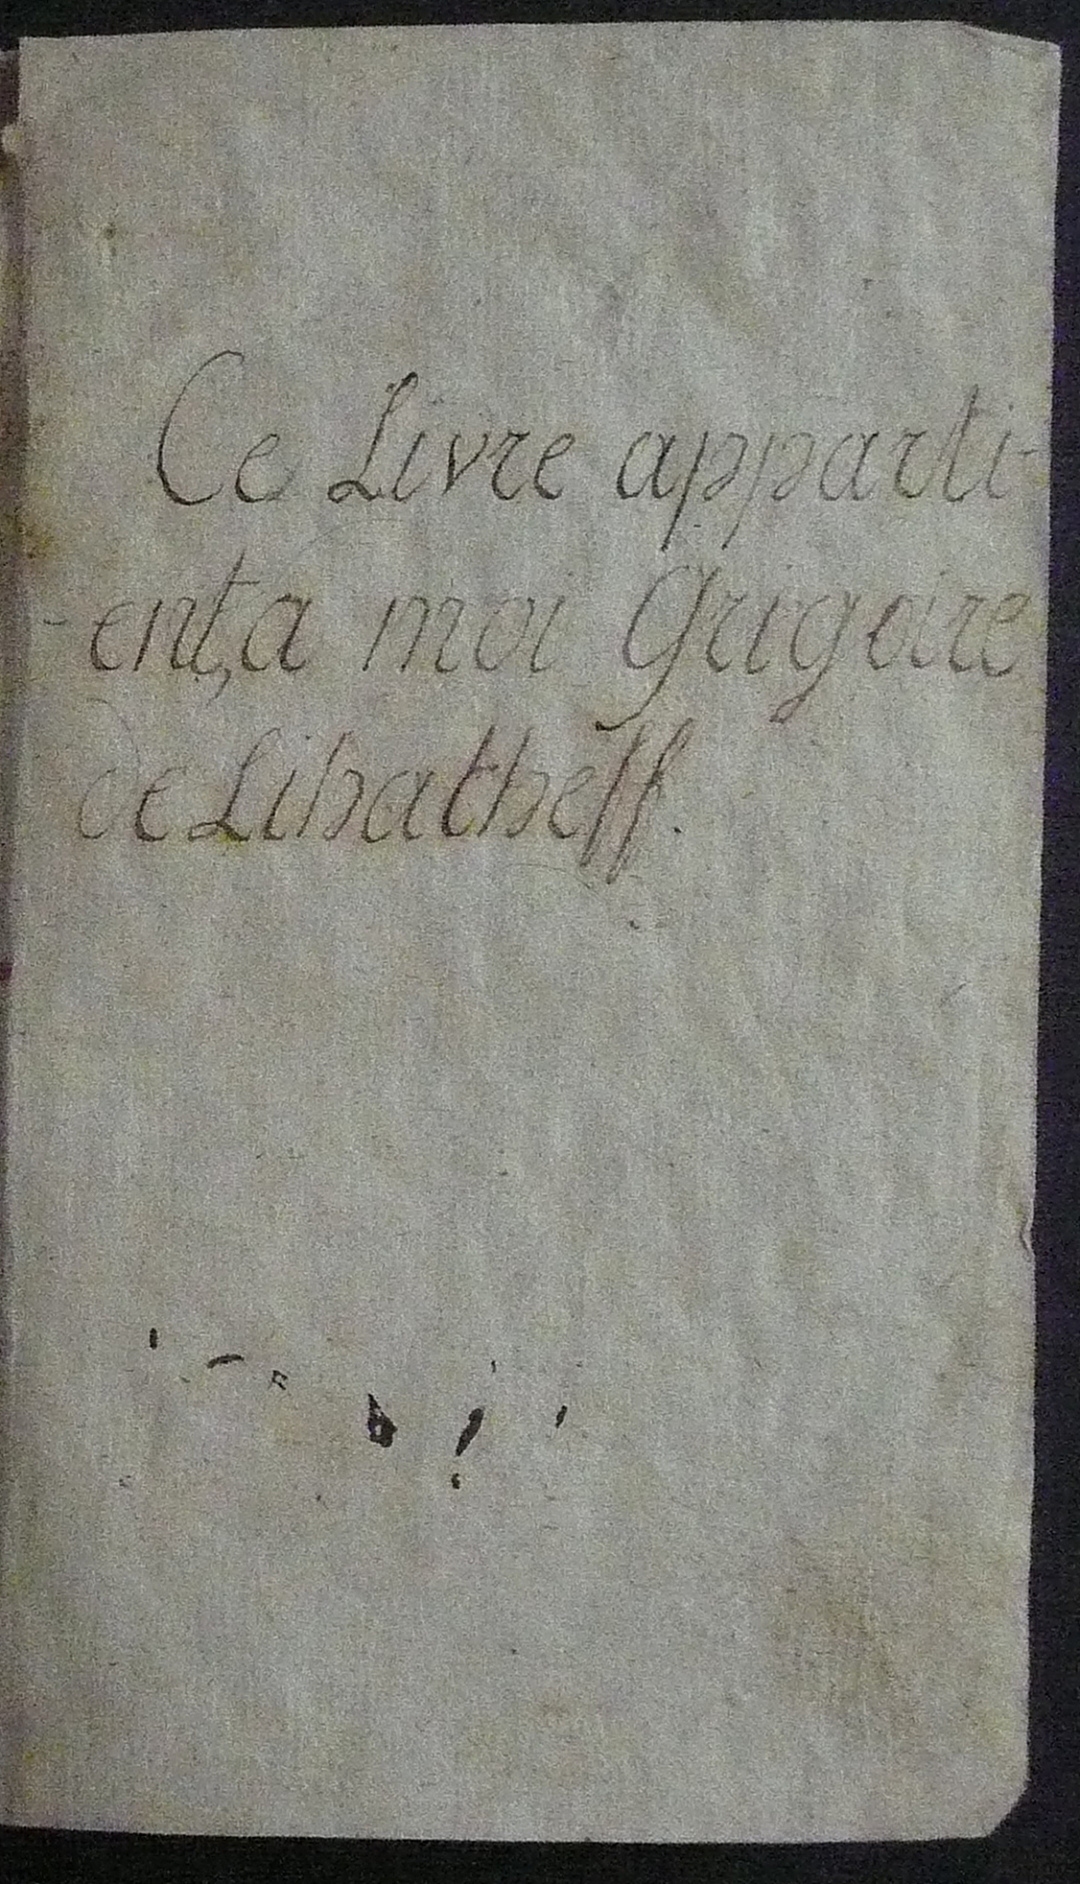 Ce Livre apparti-
-ent,a moi Grigoire
de Lihatheff.